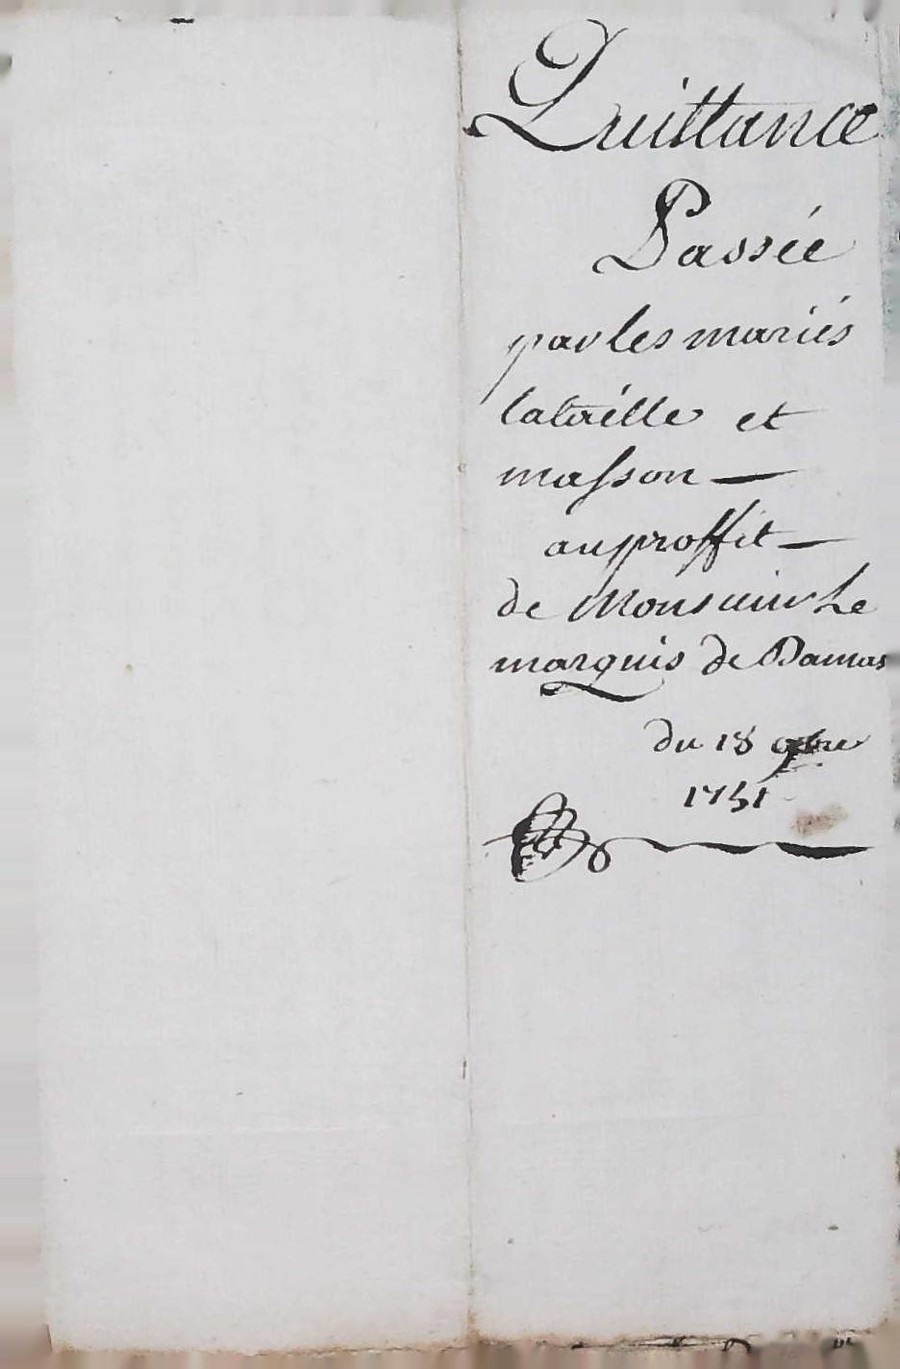 Quittance
Passée
par les mariés
lataille et
masson —
au proffit —
de Monsieur Le
marquis de Damas
du 18 9bre
1751